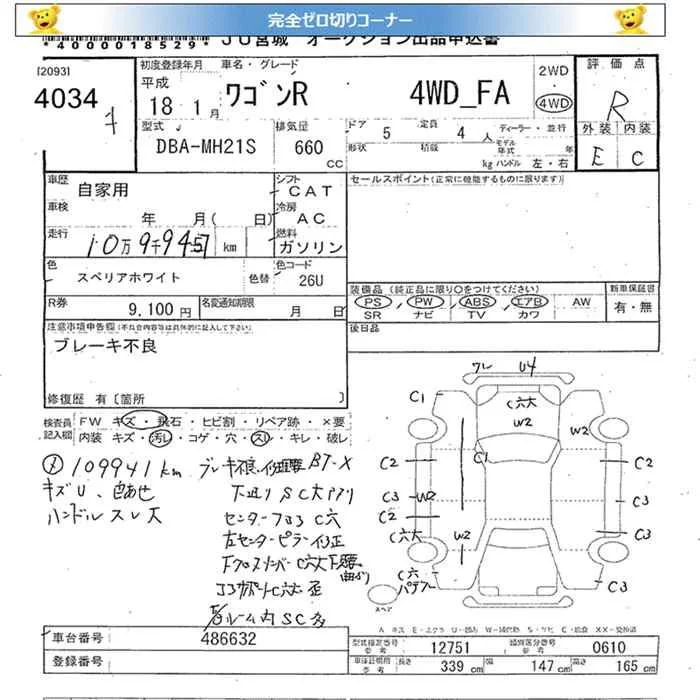 完全ゼロ切りコーナー
*4000018529* JU宮城 オークション出品申込書
(2093)
4034
初度登録年月 車名・グレード
平成
18 1月
ワゴンR 4WD_FA
2WD
・
4WD
評価点
R
外装 内装
E C
型式
DBA-MH21S
排気量
660
CC
ドア 5 定員 4人 ディーラー・並行
形状 積載 kg モデル年式 年
ハンドル 左・右
車歴
自家用
シフト
CAT
セールスポイント(正常に機能するものに限ります)
車検
年 月( 日)
冷房
AC
走行
10万9千945 km
燃料
ガソリン
色
スペリアホワイト
色替
色コード
26U
装備品(純正品に限り○をつけてください)
PS / PW / ABS / エアB / AW
SR ナビ TV カワ
新車保証書
有・無
R券
9,100円
名変通知期限
月 日
後日品
注意事項申告欄(不具合内容等は具体的に記入して下さい)
ブレーキ不良
修復歴 有〔箇所 〕
検査員記入欄
FW キズ・飛石・ヒビ割・リペア跡・×要
内装 キズ・汚レ・コゲ・穴・スレ・キレ・破レ
109941km
キズU、色あせ
ハンドルスレ大
ブレーキ不良
BT-X
センターフロアC穴
左センターピラー修正
C穴大
ルーム内SC多
U4
C1
C穴大
W2
C1
C2
C2
C3
W2
C3
C2
C3
C穴大
W2
C穴
C3
スペア
A キズ E・エクボ U・凹み W・補修跡 S・サビ C・腐食 XX・交換済
車台番号 486632
登録番号
型式指定番号
参考
12751
類別区分番号
参考
0610
車体証明用
参考
長さ 339 cm 幅 147 cm 高さ 165 cm